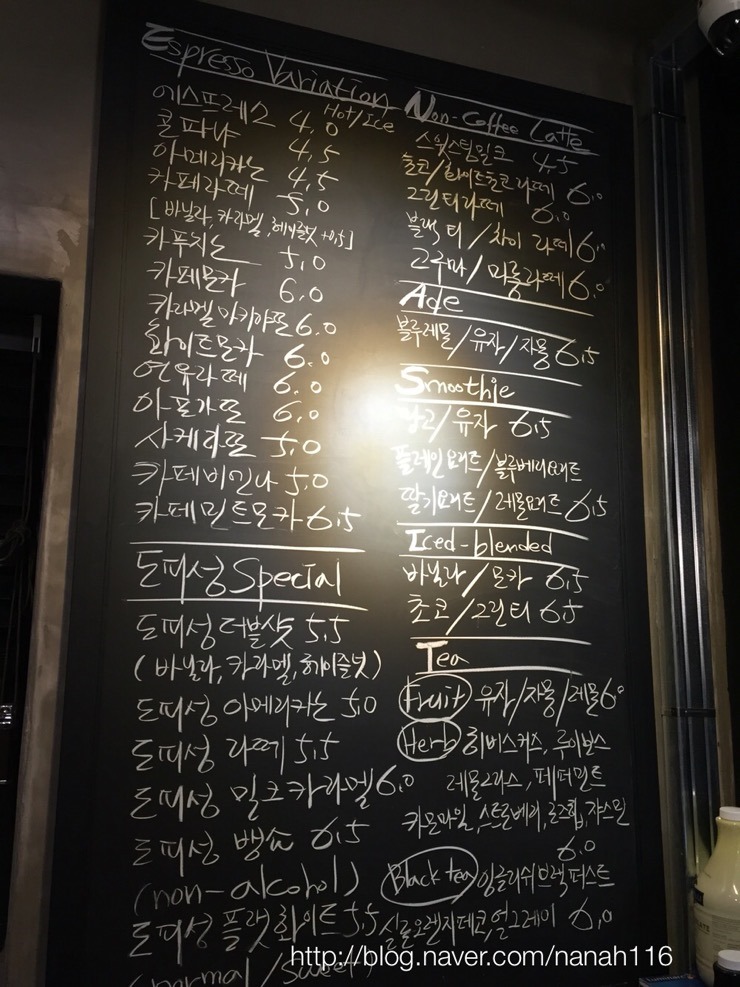 Espresso Variation
Hot/Ice
에스프레소 4.0
콘파냐 4.5
아메리카노 4.5
카페라떼 5.0
[바닐라, 카라멜, 헤이즐넛 +0.5]
카푸치노 5.0
카페모카 6.0
카라멜마키야또 6.0
화이트모카 6.0
연유라떼 6.0
아포가또 6.0
샤케라또 5.0
카페비엔나 5.0
카페민트모카 6.5
도피성 Special
도피성 더블샷 5.5
(바닐라, 카라멜, 헤이즐넛)
도피성 아메리카노 5.0
도피성 라떼 5.5
도피성 밀크카라멜 6.0
도피성 뱅쇼 6.5
(non-alcohol)
도피성 플랫화이트 5.5
(normal / sweet)
Non-Coffee Latte
스윗스팀밀크 4.5
초코/화이트초코라떼 6.0
그린티라떼 6.0
블랙티/차이 라떼 6.0
고구마/미룽라떼 6.0
Ade
블루레몬/유자/자몽 6.5
Smoothie
망고/유자 6.5
플레인요거트/블루베리요거트
딸기요거트/레몬요거트 6.5
Iced-blended
바닐라/모카 6.5
초코/그린티 6.5
Tea
Fruit 유자/자몽/레몬 6.0
Herb 히비스커스, 루이보스
레몬그라스, 페퍼민트
카모마일, 스트로베리, 로즈힙, 쟈스민
6.0
Black tea 잉글리쉬브랙퍼스트
실론오렌지페코, 얼그레이 6.0
http://blog.naver.com/nanah116